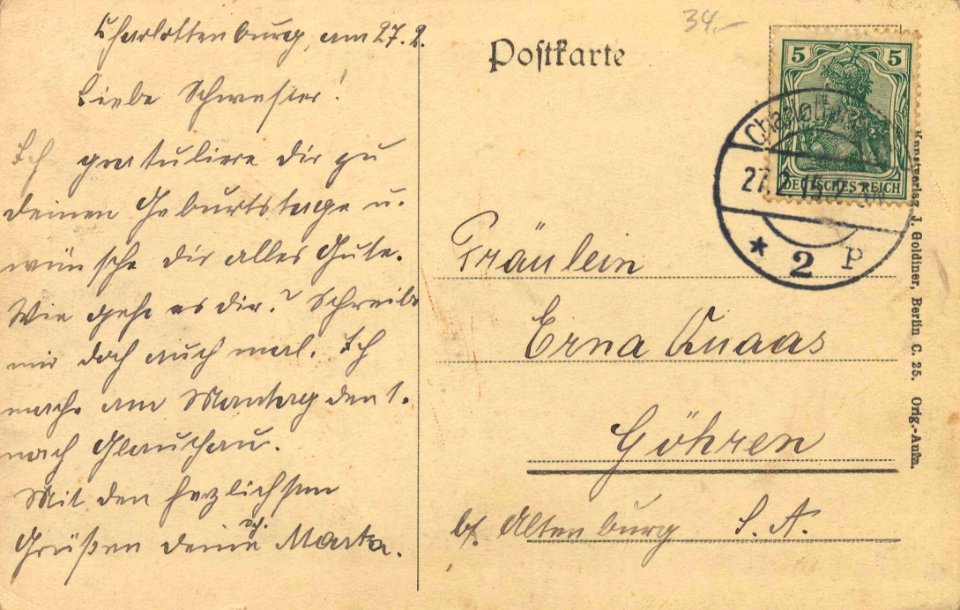 Charlottenburg, am 27.2.
Liebe Schwester!
Ich gratuliere dir zu
deinen Geburtstage u.
wünsche dir alles Gute.
Wie geht es dir? Schreibe
mir doch auch mal. Ich
mache am Montag den 1.
nach Glauchau.
Mit den herzlichsten
Grüßen deine Sch. Marta.
34.-
Postkarte
5 5
DEUTSCHES REICH
Charlottenburg
27.2.14
* 2 P
Fräulein
Erna Knaas
Göhren
bf. Altenburg S. A.
Kunstverlag J. Goldiner, Berlin C. 25. Orig.-Aufn.